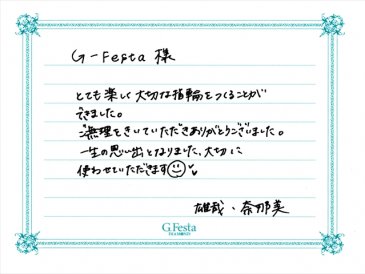 G-Festa 様
とても楽しく大切な指輪をつくることが
できました。
ご無理をきいていただきありがとうございました。
一生の思い出となりました、大切に
使わせていただきます
雄哉・奈那美
G.Festa
DIAMONDY